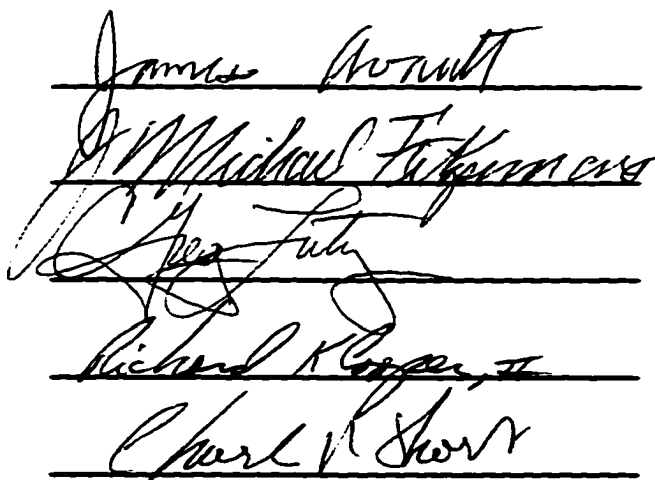 James Avault
J Michael Fitzsimons
Greg Lutz
Richard K Cooper, II
Charl R Short